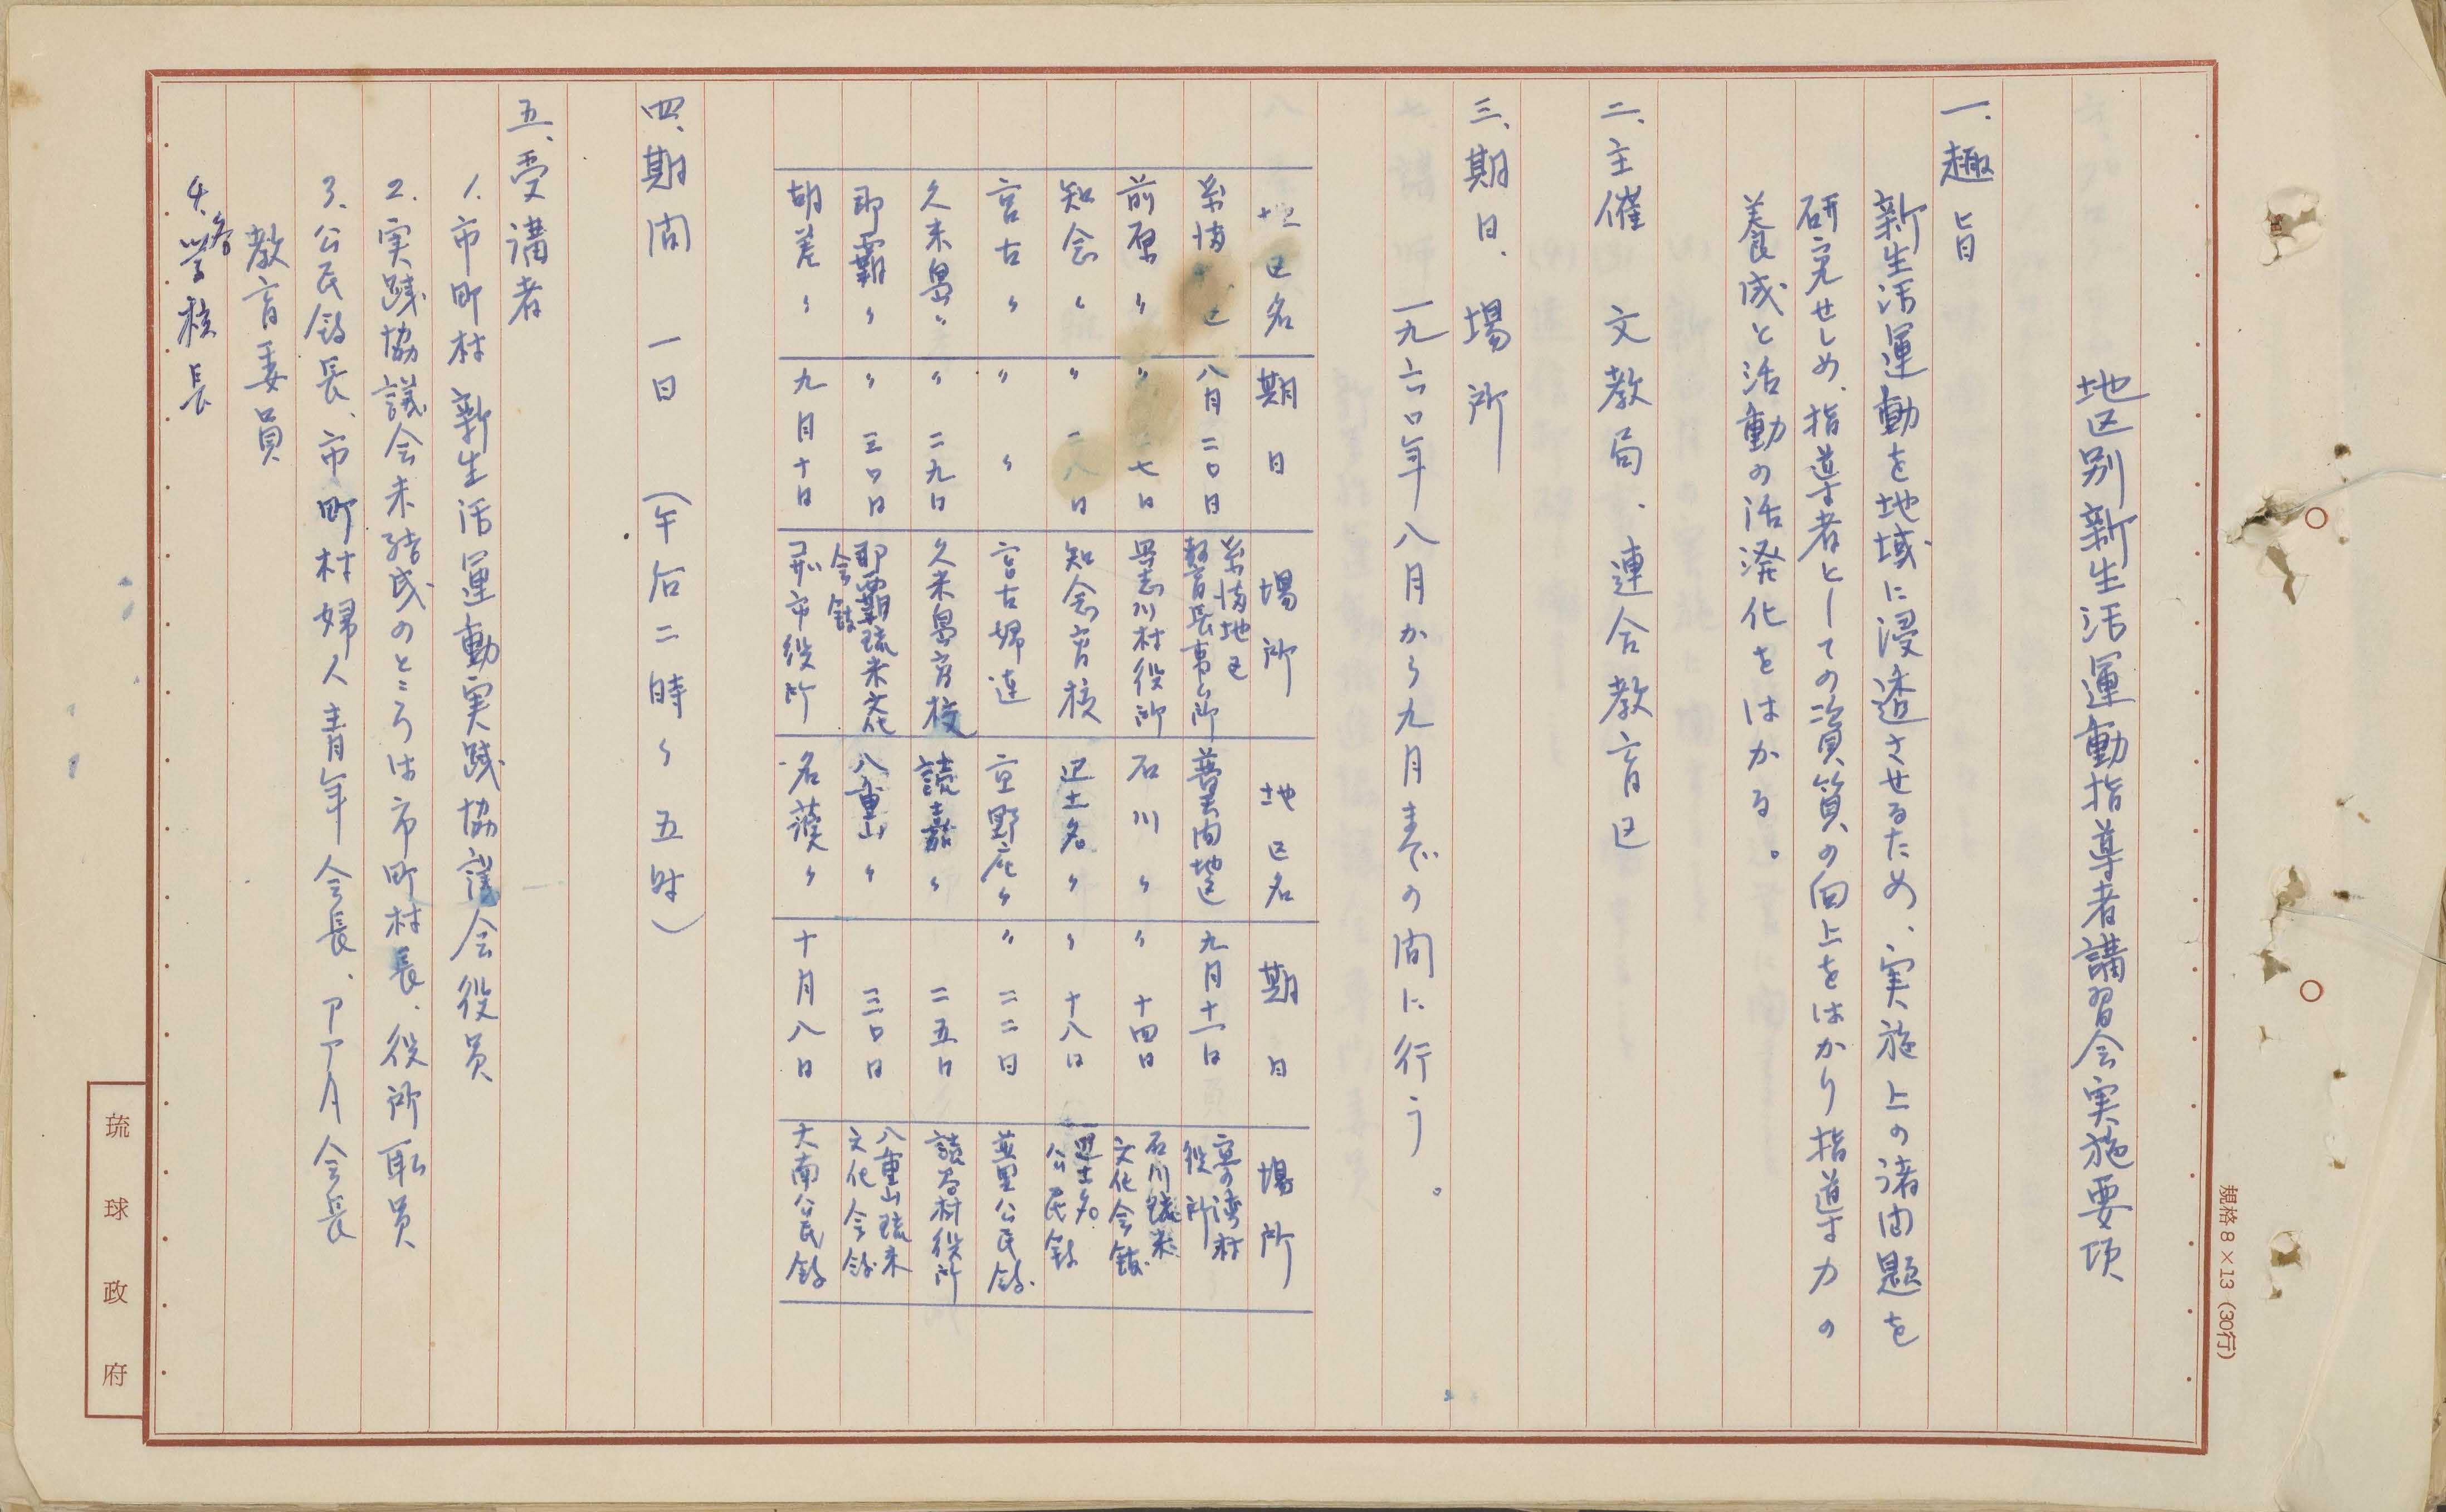 地区別新生活運動指導者講習会実施要項
一、趣旨
新生活運動を地域に浸透させるため、実施上の諸問題を
研究せしめ、指導者としての資質の向上をはかり指導力の
養成と活動の活溌化をはかる。
二、主催　文教局、連合教育区
三、期日、場所
一九六〇年八月から九月までの間に行う。
地区名　期日　場所　地区名　期日　場所
糸満地区　八月二〇日　糸満地区教育長事ム所　普天間地区　九月十一日　宜の湾村役所
前原〃　〃二七日　具志川村役所　石川〃　〃十四日　石川琉米文化会館
知念〃　〃二八日　知念高校　辺土名〃　〃十八日　辺土名公民館
宮古〃　〃　〃　宮古婦連　宜野座〃　〃二二日　公民館
久米島〃　〃二九日　久米島高校　読嘉〃　二五日　読谷村役所
那覇〃　〃三〇日　那覇琉米文化会館　八重山〃　三〇日　八重山琉米文化会館
胡差〃　九月十日　コザ市役所　名護〃　十月八日　大南公民館
四、期間　一日　（午后二時〜五時）
五、受講者
1. 市町村新生活運動実践協議会役員
2. 実践協議会未結成のところは市町村長、役所職員
3、公民館長、市町村婦人青年会長、PTA会長
教育委員
4、各学校長
琉球政府
規格8×13（30行）